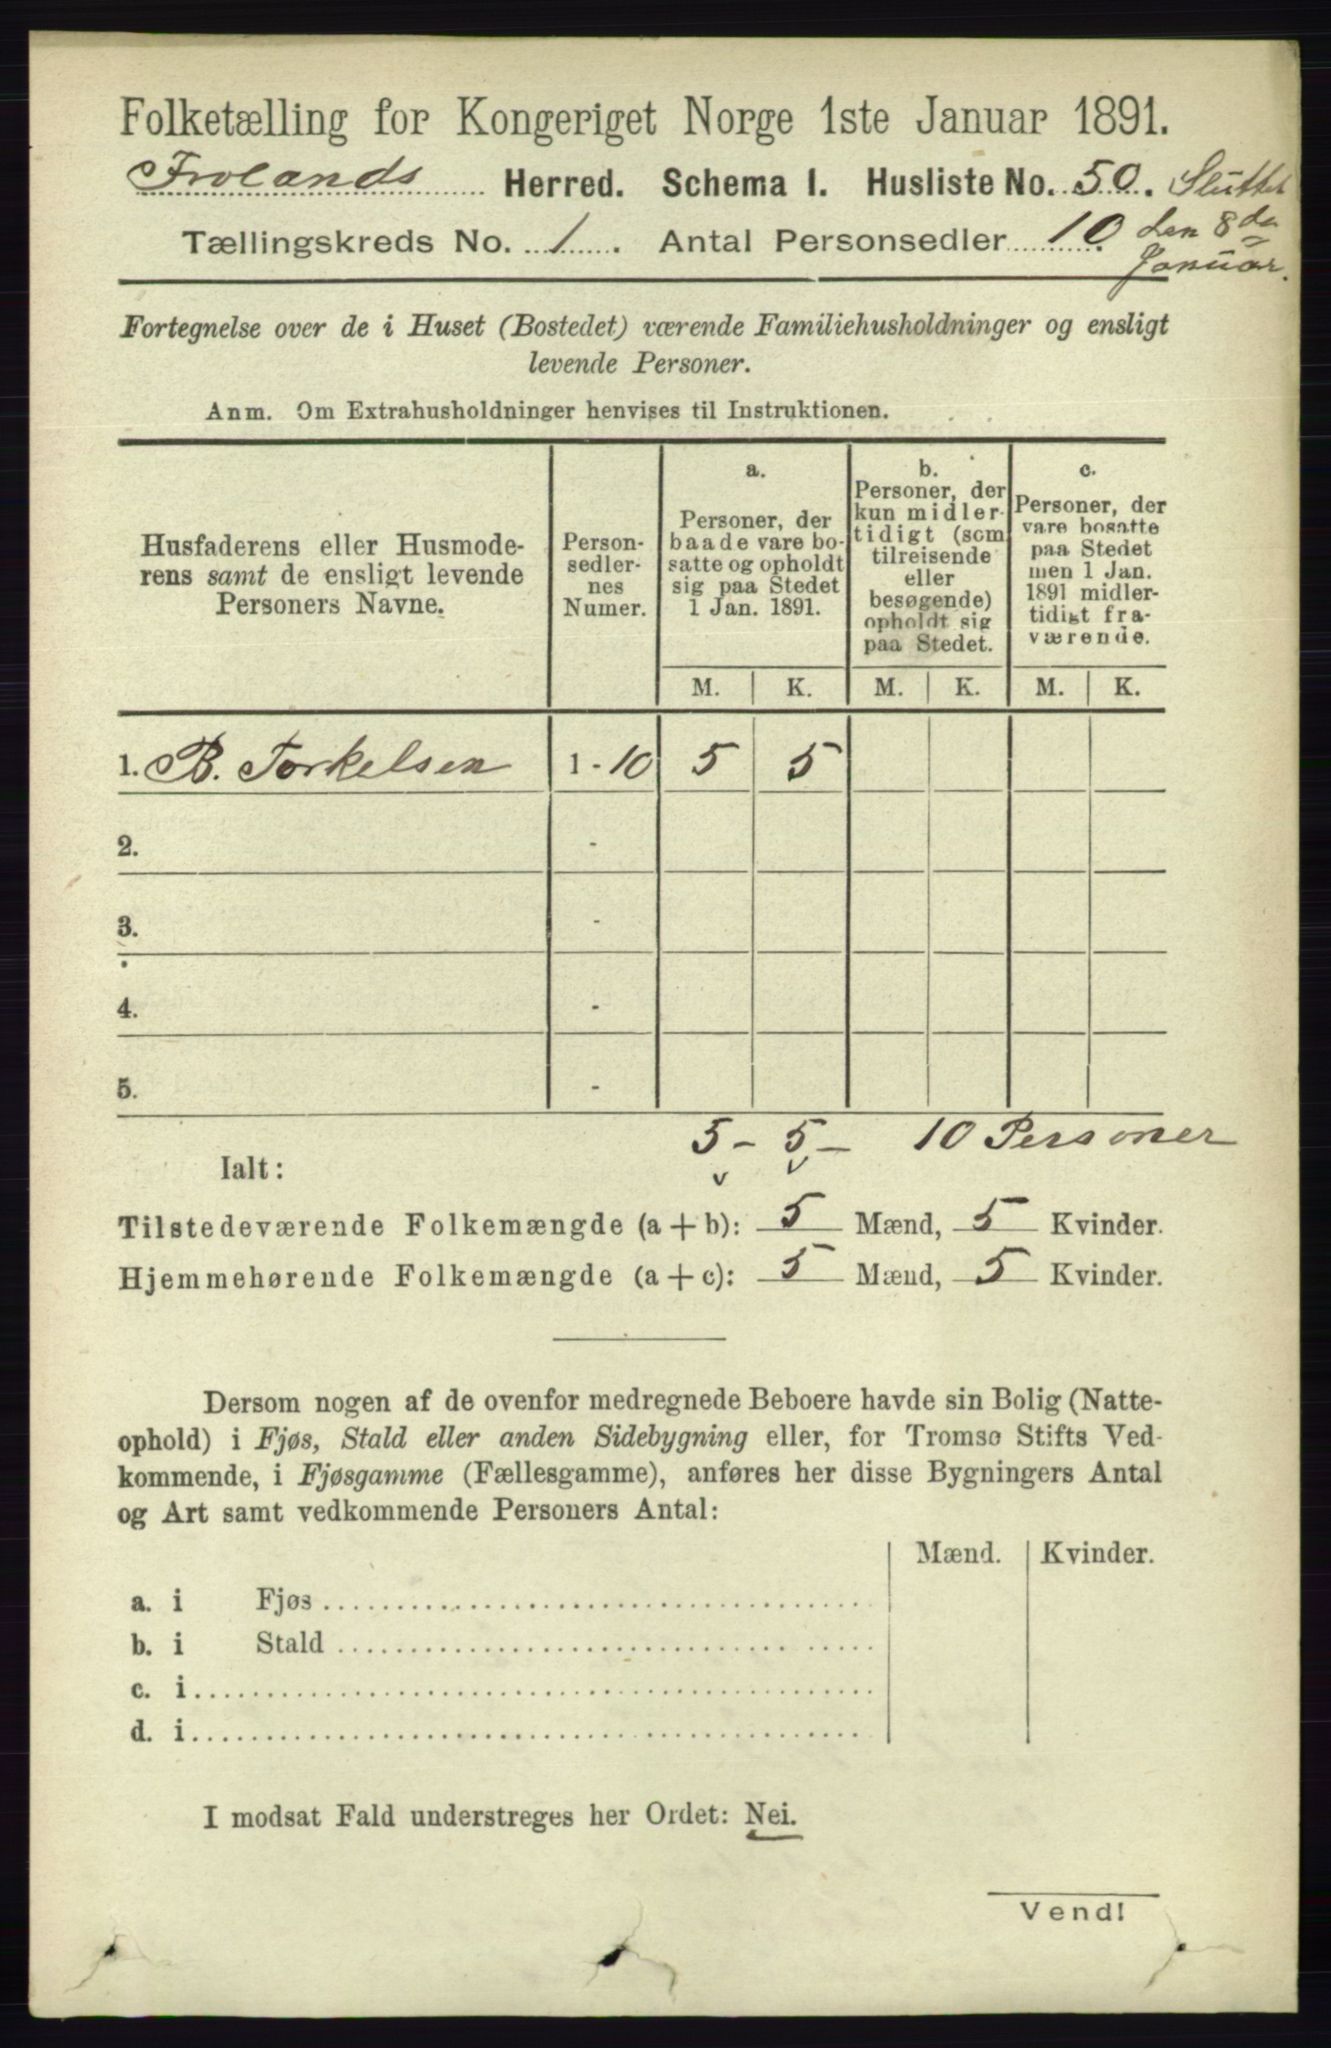 Folketælling for Kongeriget Norge 1ste Januar 1891.
Frolands Herred. Schema I. Husliste No. 50. Sluttet
Tællingskreds No. 1. Antal Personsedler 10. den 8de
Januar.
Fortegnelse over de i Huset (Bostedet) værende Familiehusholdninger og ensligt
levende Personer.
Anm. Om Extrahusholdninger henvises til Instruktionen.
Husfaderens eller Husmode-
rens samt de ensligt levende
Personers Navne.
Person-
sedler-
nes
Numer.
a.
Personer, der
baade vare bo-
satte og opholdt
sig paa Stedet
1 Jan. 1891.
b.
Personer, der
kun midler-
tidigt (som
tilreisende
eller
besøgende)
opholdt sig
paa Stedet.
c.
Personer, der
vare bosatte
paa Stedet
men 1 Jan.
1891 midler-
tidigt fra-
værende.
M. K. M. K. M. K.
1. B. Torkelsen 1 - 10 5 5
2. -
3. -
4. -
5. -
5 - 5 - 10 Personer
Ialt:
Tilstedeværende Folkemængde (a + b): 5 Mænd, 5 Kvinder.
Hjemmehørende Folkemængde (a + c): 5 Mænd, 5 Kvinder.
Dersom nogen af de ovenfor medregnede Beboere havde sin Bolig (Natte-
ophold) i Fjøs, Stald eller anden Sidebygning eller, for Tromsø Stifts Ved-
kommende, i Fjøsgamme (Fællesgamme), anføres her disse Bygningers Antal
og Art samt vedkommende Personers Antal:
Mænd. Kvinder.
a. i Fjøs
b. i Stald
c. i
d. i
I modsat Fald understreges her Ordet: Nei.
Vend!